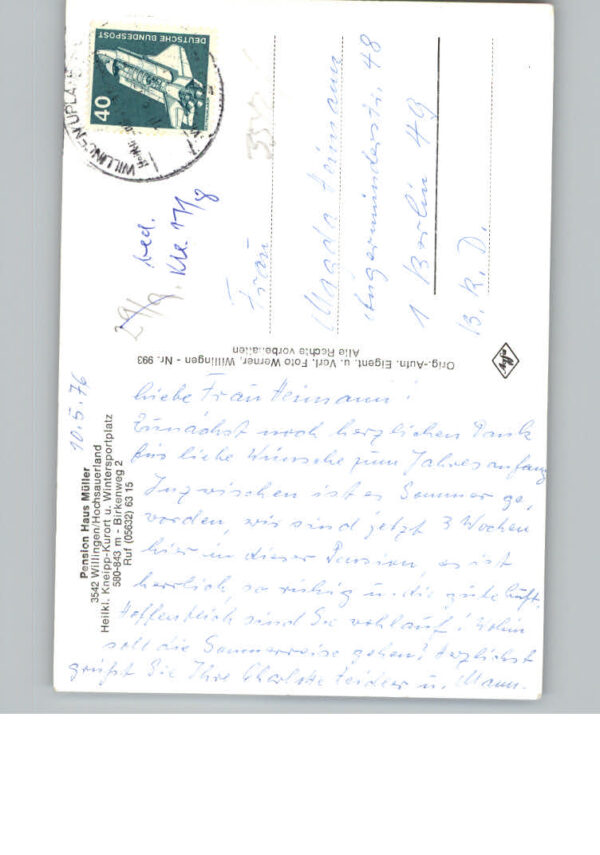 DEUTSCHE BUNDESPOST
40
led.
Kle. 17/8
29/9.
Frau
Heimann
Angermünderstr. 48
1 Berlin 49
B. R. D.
Orig.-Aufn. Eigent. u. Verl. Foto Werner, Willingen - Nr. 993
Alle Rechte vorbehalten
Agfa
10.5.76
Pension Haus Müller
3542 Willingen/Hochsauerland
Heilkl. Kneipp-Kurort u. Wintersportplatz
580-843 m - Birkenweg 2
Ruf (05632) 63 15
Liebe Frau Heimann!
Zunächst noch herzlichen Dank
für liebe Wünsche zum Jahresanfang
Inzwischen ist es Sommer ge,
worden, wir sind jetzt 3 Wochen
hier in dieser Pension, es ist
herrlich, so ruhig u. die gute Luft.
Hoffentlich sind Sie wohlauf! Wohin
soll die Sommerreise gehen? Herzlichst
grüßt Sie Ihre Charlotte u. Mann.